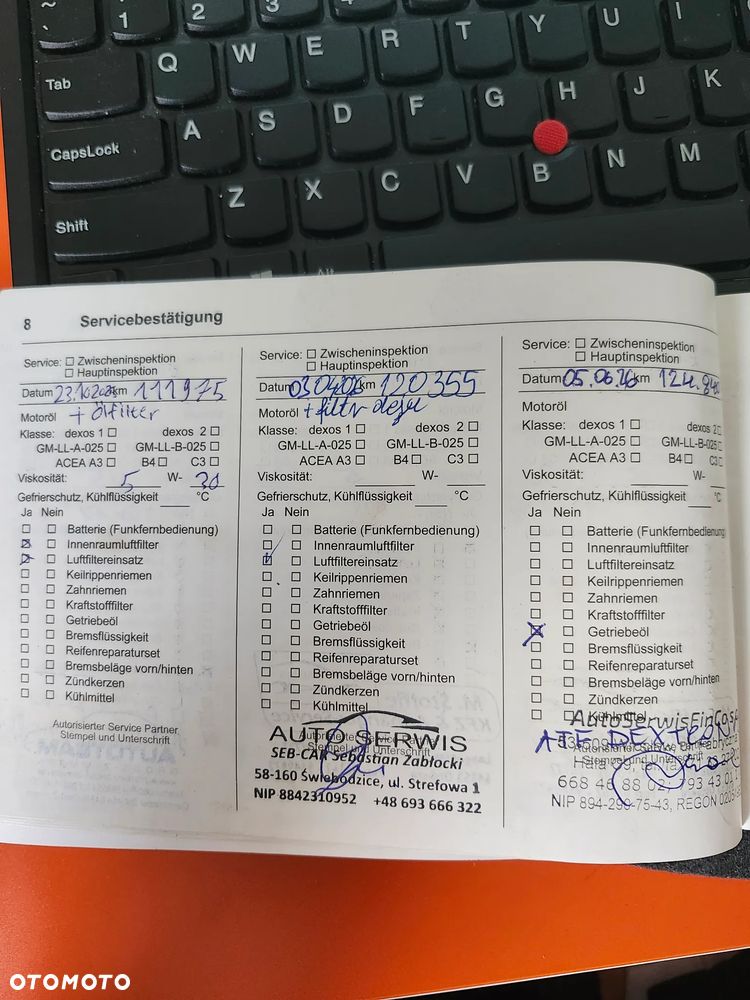 ~
`
1
2
3
4
5
6
7
8
Tab
Q
W
E
R
T
Y
U
I
CapsLock
A
S
D
F
G
H
J
K
Shift
Z
X
C
V
B
N
M
Alt
8 Servicebestätigung
Service: ☐ Zwischeninspektion
☐ Hauptinspektion
Datum km 111975
Motoröl + ölfilter
Klasse: dexos 1 ☐ dexos 2 ☐
GM-LL-A-025 ☐ GM-LL-B-025 ☐
ACEA A3 ☐ B4 ☐ C3 ☐
Viskosität: 5 W- 30
Gefrierschutz, Kühlflüssigkeit °C
Ja Nein
☐ ☐ Batterie (Funkfernbedienung)
☒ ☐ Innenraumluftfilter
☒ ☐ Luftfiltereinsatz
☐ ☐ Keilrippenriemen
☐ ☐ Zahnriemen
☐ ☐ Kraftstofffilter
☐ ☐ Getriebeöl
☐ ☐ Bremsflüssigkeit
☐ ☐ Reifenreparaturset
☐ ☐ Bremsbeläge vorn/hinten
☐ ☐ Zündkerzen
☐ ☐ Kühlmittel
Autorisierter Service Partner
Stempel und Unterschrift
Service: ☐ Zwischeninspektion
☐ Hauptinspektion
Datum km 120355
Motoröl + filtr
Klasse: dexos 1 ☐ dexos 2 ☐
GM-LL-A-025 ☐ GM-LL-B-025 ☐
ACEA A3 ☐ B4 ☐ C3 ☐
Viskosität: W-
Gefrierschutz, Kühlflüssigkeit °C
Ja Nein
☐ ☐ Batterie (Funkfernbedienung)
☐ ☐ Innenraumluftfilter
☑ ☐ Luftfiltereinsatz
☐ ☐ Keilrippenriemen
☐ ☐ Zahnriemen
☐ ☐ Kraftstofffilter
☐ ☐ Getriebeöl
☐ ☐ Bremsflüssigkeit
☐ ☐ Reifenreparaturset
☐ ☐ Bremsbeläge vorn/hinten
☐ ☐ Zündkerzen
☐ ☐ Kühlmittel
AUTO SERWIS
Stempel und Unterschrift
SEB-CAR Sebastian Zabłocki
58-160 Świebodzice, ul. Strefowa 1
NIP 8842310952 +48 693 666 322
Service: ☐ Zwischeninspektion
☐ Hauptinspektion
Datum 05.06.26 km
Motoröl
Klasse: dexos 1 ☐ dexos 2 ☐
GM-LL-A-025 ☐ GM-LL-B-025 ☐
ACEA A3 ☐ B4 ☐ C3 ☐
Viskosität: W-
Gefrierschutz, Kühlflüssigkeit °C
Ja Nein
☐ ☐ Batterie (Funkfernbedienung)
☐ ☐ Innenraumluftfilter
☐ ☐ Luftfiltereinsatz
☐ ☐ Keilrippenriemen
☐ ☐ Zahnriemen
☐ ☐ Kraftstofffilter
☒ ☐ Getriebeöl
☐ ☐ Bremsflüssigkeit
☐ ☐ Reifenreparaturset
☐ ☐ Bremsbeläge vorn/hinten
☐ ☐ Zündkerzen
☐ ☐ Kühlmittel
ATF DEXTRON
Stempel und Unterschrift
668 46 88 02,
NIP 894-299-75-43, REGON
OTOMOTO